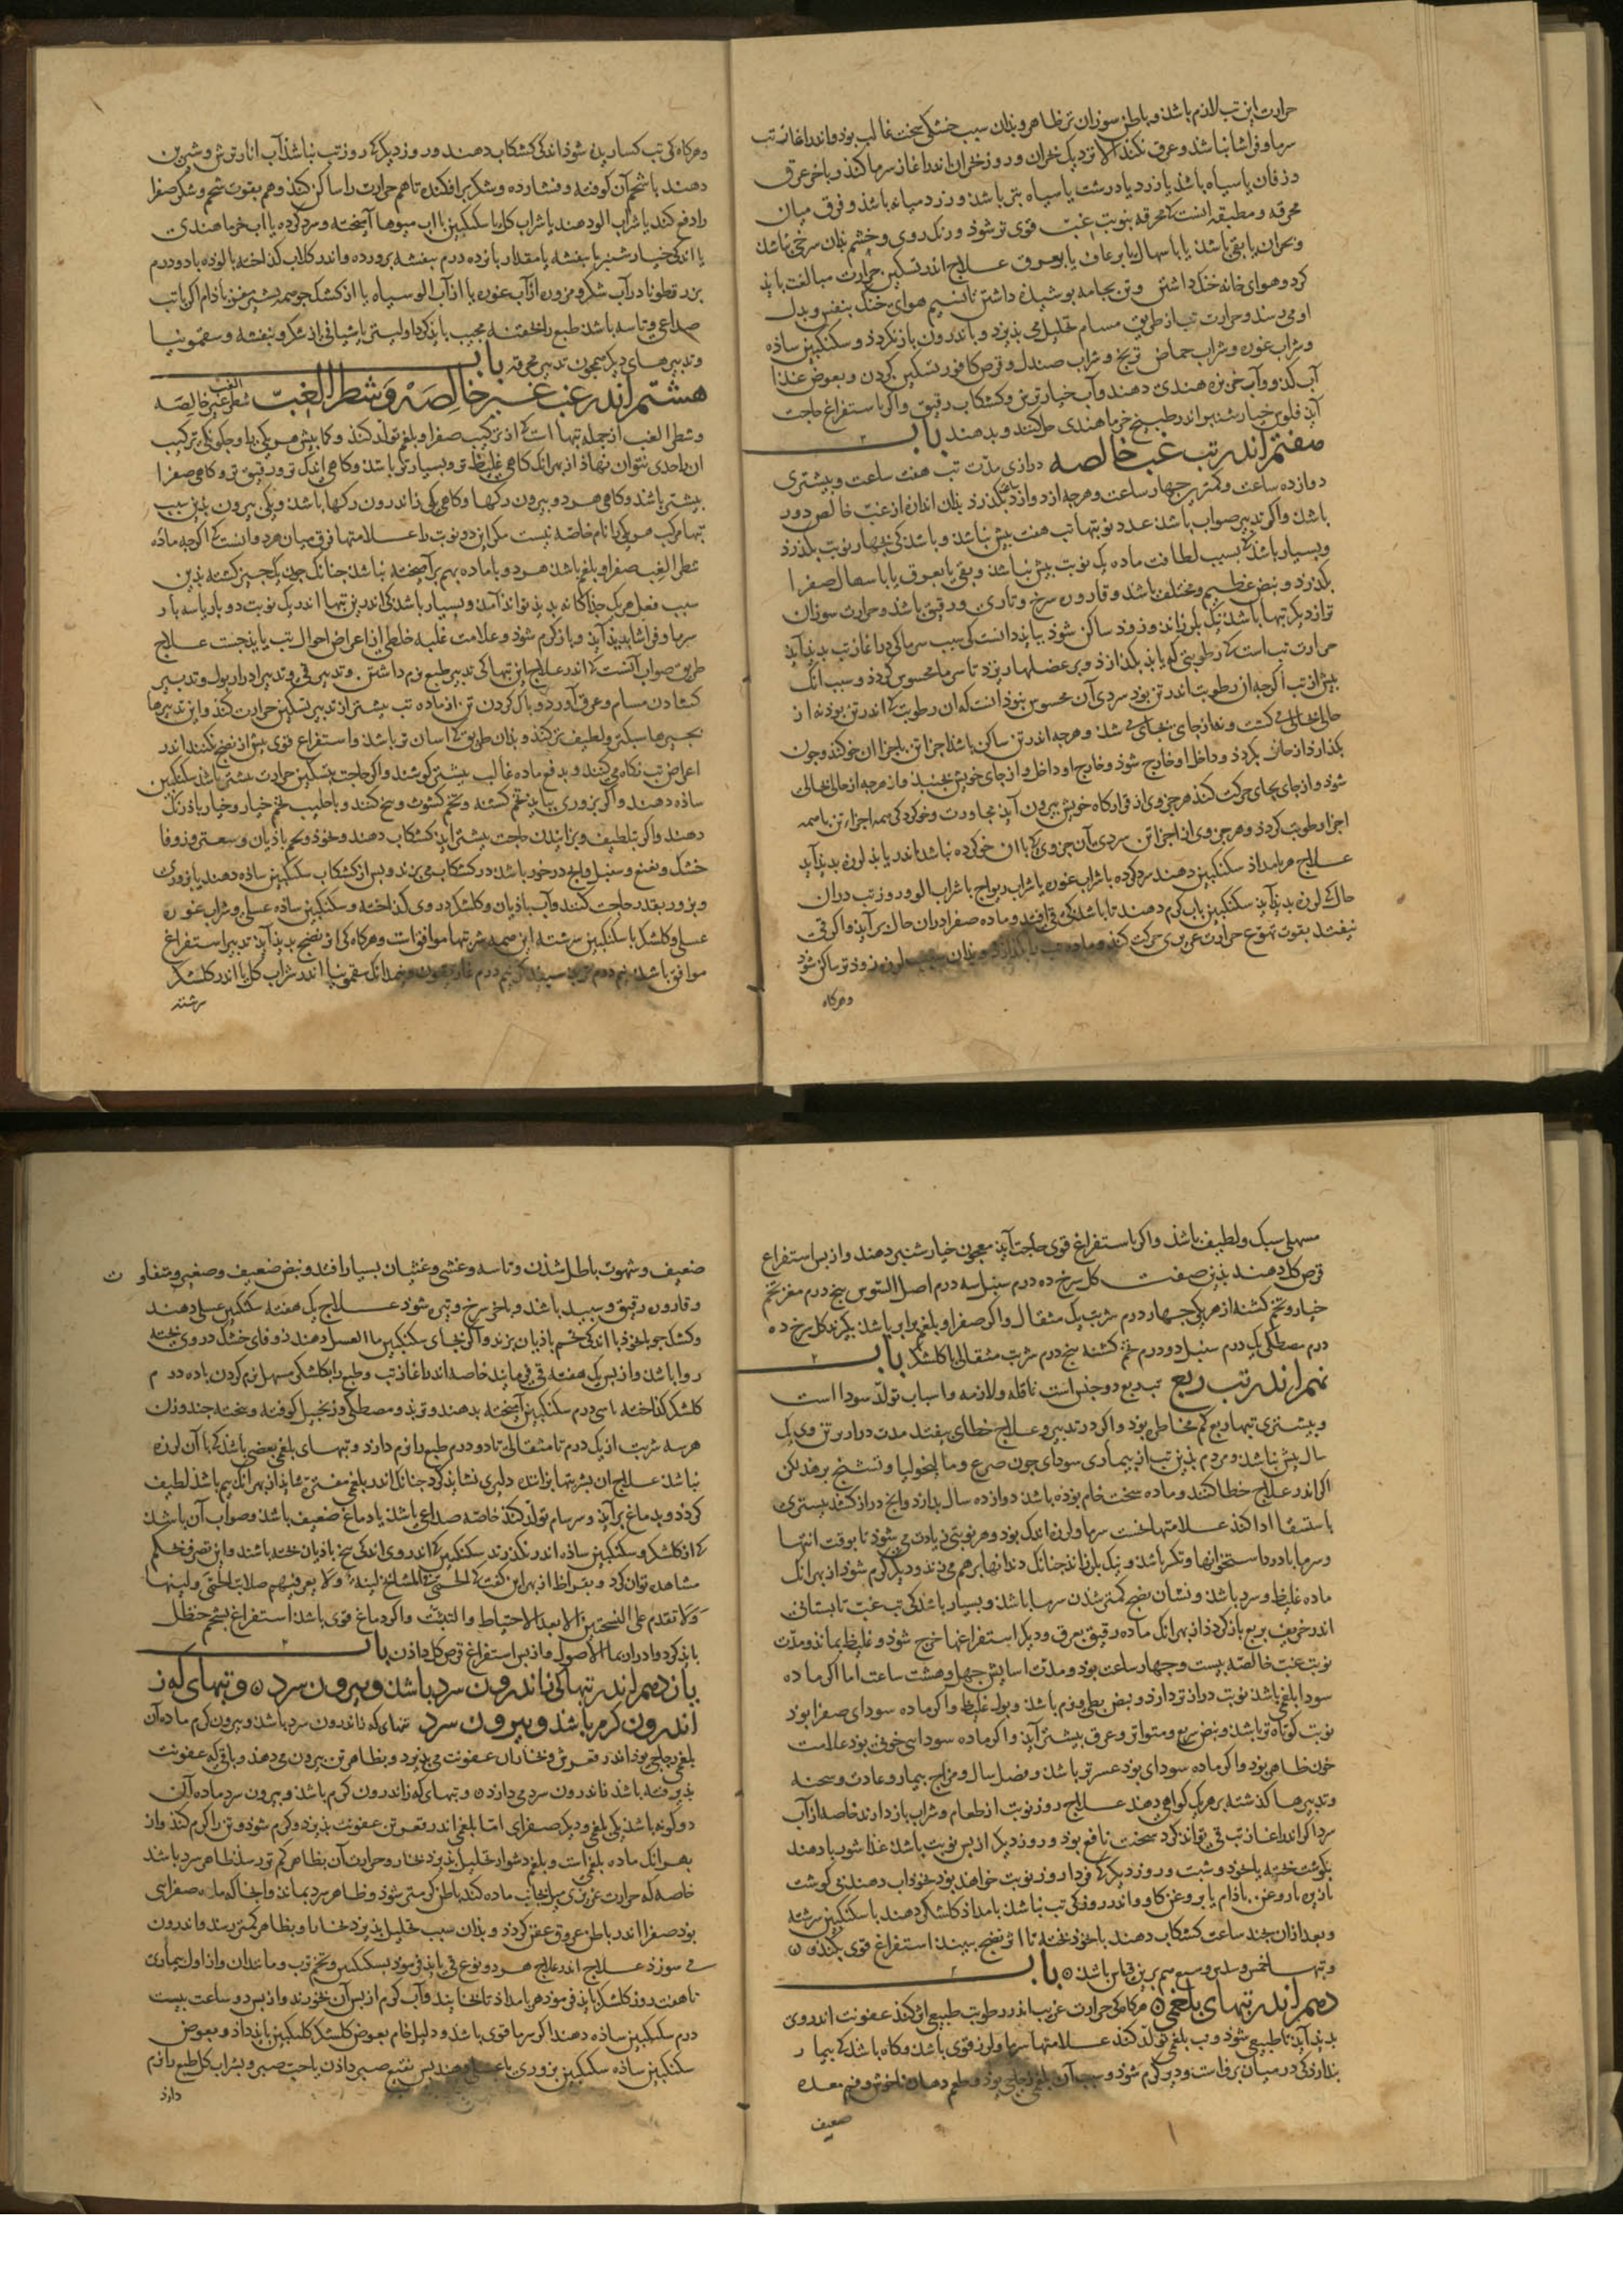 حرارت این تب لازم باشد و باطن سوزان تر ظاهر و بدان سبب خشکی سخت غالب بود و اندر اغاز تب
سرما و فراشا نباشد و عرق نکند الا نزدیک بحران و روز بحران اندر اغاز سرما کند و باخر عرق
و زفان یا سیاه باشد یا زرد یا درشت یا سیاه تر باشد و زرد میانه باشد و فرق میان
محرقه و مطبقه انست که محرقه بنوبت غب قوی تر شود و رنک روی و چشم بدان سرخی نباشد
و بحران یا بقی باشد یا باسهال یا برعاف یا بعرق علاج اندر تسکین حرارت مبالغت باید
کرد و هوای خانه خنک داشتن و تن بجامه پوشیده داشتن تا نسیم هوای خنک بنفس و بدل
او می رسد و حرارت تب از طریق مسام تحلیل می پذیرد و باندرون باز نکردد و سکنکبین ساده
و شراب غوره و شراب حماض ترنج و شراب صندل و قرص کافور تسکین کردن و بعوض غذا
آب کدو و آب خربزه هندی دهند و آب خیار ترین و کشکاب رقیق و اکر باستفراغ حاجت
آید فلوس خیارشنبر اندر طبیخ خرماهندی حل کنند و بدهند باب
هفتم اندر تب غب خالصه درازی مدت تب هفت ساعت و بیشتری
دوازده ساعت و کمتر چهار ساعت و هرچه از دوازده بکذرد بدان اندازه از غب خالص دور
باشد و اکر تدبیر صواب باشد عدد نوبتها تب هفت بیش نباشد و باشد کی بچهار نوبت بکذرد
و بسیار باشد که بسبب لطافت ماده یک نوبت بیش نباشد و بقی یا بعرق یا باسهال صفرا
بکذرد و نبض عظیم و مختلف باشد و قاروره سرخ و ناری و رقیق باشد و حرارت سوزان
تر از دیکر تبها باشد نیک بلرزاند و زود ساکن شود بباید دانست کی سبب سرما کی در اغاز تب پدید آید
حرارت تب است که رطوبتی که یابد بکدازد و بر عضلها ریزد تا سرما محسوس کردد و سبب انک
بیش از تب اکرچه ان رطوبت اندر تن بود سردی آن محسوس نبود انست که ان رطوبت که اندر تن بود نه از
حالی بحالی می کشت و نه از جای بجای می شد و هرچه اندر تن ساکن باشد اجزا تن باجزا ان خو کند و چون
شود و از جای بجای حرکت کند هر جزوی از قرارکاه خویش بیرون آید مجاورت و خو کردکی همه اجزاء تن باهمه
اجزا رطوبت کردد و هر جزوی از اجزا تن سردی آن جزوی که با ان خو کرده نباشد اندر یابد لرزه پدید آید
علاج هر بامداد سکنکبین دهند سرد کرده با شراب غوره یا شراب ریواج یا شراب الو و روز تب در ان
حال که لرزه پدید آید سکنکبین باب کرم دهند تا باشد کی قی افتد و ماده صفرا در ان حال بر آید و اکر قی
نیفتد بقوت تهوع حرارت غریزی حرکت کند و ماده تب را بکدازد و بدان سبب لرزه زودتر ساکن شود
و هرکاه
و هرکاه کی تب کسارید شود اندکی کشکاب دهند و روز دیکر که روز تب نباشد آب انار ترش و شیرین
دهند با شحم آن کوفته و فشارده و شکر بر افکنده تا هم حرارت را ساکن کند و هم بقوت شحم و شکر صفرا
را دفع کند یا شراب الو دهند یا شراب کل یا سکنکبین با اب میوها آمیخته و سرد کرده یا اب خرما هندی
یا اندکی خیارشنبر یا بنفشه یا مقدار پانزده درم بنفشه پرورده و اندر کلاب کداخته پالوده با دو درم
بزرقطونا در آب شکر و مزوره از آب غوره یا از آب الو سیاه یا از کشک جو همه بشیره مغز باذام اکر با تب
صداعی و تاسه باشد طبع را بحقنه مجیب باید کرد اولیتر یا شیافی از شکر و بنفشه و سقمونیا
و تدبیرهای دیکر همچون تدبیر محرقه باب
هشتم اندر غب غیر خالصه و شطر الغب غب غیر خالصه
و شطر الغب از جمله تبها است که از ترکیب صفرا و بلغم تولد کند و کما بیش هر یکی را و چکونکی ترکیب
ان را حدی نتوان نهاد از بهر انک کاهی غلیظ تر و بسیارتر باشد و کاهی اندک تر و رقیق تر و کاهی صفرا
بیشتر باشد و کاهی هر دو بیرون رکها و کاهی یکی زاندرون رکها باشد و یکی بیرون بدین سبب
تبها مرکب هر یکی را نام خاصه نیست مکر این دو نوبت را علامتها فرق میان هر دو انست که اکرچه ماده
شطر الغب صفرا و بلغم باشد هر دو با ماده بهم بر آمیخته نباشد چنانک چون یک چیز کشته بدین
سبب فعل هر یک جداکانه پدید تواند آمد و بسیار باشد کی اندرین تبها اندر یک نوبت دو بار یا سه بار
سرما و فراشا پدید آید و باز کرم شود و علامت غلبه خلطی از اعراض احوال تب باید جست علاج
طریق صواب آنست که اندر علاج این تبها کی تدبیر طبع نرم داشتن و تدبیر قی و تدبیر ادرار بول و تدبیر
کشادن مسام و عرق آورد و پاک کردن تن از ماده تب بیشتر از تدبیر تسکین حرارت کند و این تدبیرها
بچیزها سبکتر و لطیف تر کند و بدان طریق که اسان تر باشد و استفراغ قوی بیش از نضج نکنند اندر
اعراض تب نکاه می کنند و بدفع ماده غالب بیشتر کوشند و اکر حاجت بتسکین حرارت بیشتر باشد سکنکبین
ساده دهند و اکر بزوری باید تخم کشنه و تخم کشوث و بیخ کنند و باطیب تخم خیار و خیار باذرنک
دهند و اکر بتلطیف و پزانیدن حاجت بیشتر اید کشکاب دهند و نخود و تخم باذیان و سعتر و زوفا
خشک و نعنع و سنبل و انچه در خور باشد در کشکاب می پزند و پس از کشکاب سکنکبین ساده دهند یا بزورک
و بزور بقدر حاجت کنند و آب باذیان و کلشکر در وی کداخته و سکنکبین ساده عسلی و شراب غوره
عسلی و کلشکر با سکنکبین سرشته این همه شربتها موافق است و هرکاه کی اثر نضج پدید آید تدبیر استفراغ
موافق باشد نیم درم تربد سپید کی نیم درم غاریقون و نیم دانک سقمونیا اندر شراب کل یا اندر کلشکر
سرشته
مسهلی سبک و لطیف باشد و اکر باستفراغ قوی حاجت آید معجون خیارشنبر دهند و از پس استفراغ
قرص کل دهند بدین صفت کل سرخ ده درم سنبل سه درم اصل السوس پنج درم مغز تخم
خیار و تخم کشنه از هر یکی چهار درم شربت یک مثقال و اکر صفرا و بلغم برابر باشد بکیرند کل سرخ ده
درم مصطکی یک درم سنبل دو درم تخم کشنه پنج درم شربت مثقالی با کلشکر باب
نهم اندر تب ربع تب ربع دو جنس است نافله و لازمه و اسباب تولد سودا است
و بیشتری تبها ربع کم مخاطره بود و اکر در تدبیر و علاج خطای نیفتد مدت درازترین وی یک
سال بیش نباشد و مردم بدین تب از بیماری سودای چون صرع و مالیخولیا و تشنج برهد لکن
اکر اندر علاج خطا کنند و ماده سخت خام بوده باشد دوازده سال بدارد و انچ دراز کشد بیشتری
باستسقا ادا کند علامتها نخست سرما و لرزه اندک بود و هر نوبتی زیادت می شود تا بوقت انتها
و سرما با درد استخوانها و تکسر باشد و نیک بلرزاند چنانک دندانها بر هم می زند و دیر کرم شود از بهر انک
ماده غلیظ و سرد باشد و نشان نضج کمتر شدن سرما باشد و بسیار باشد کی تب غب تابستانی
اندر خریف بربع باز کردد از بهر انک ماده رقیق بعرق و دیکر استفراغها خرج شود و غلیظ بماند و مدت
نوبت غب خالصه بیست و چهار ساعت بود و مدت اسایش چهل و هشت ساعت اما اکر ماده
سودا بلغمی باشد نوبت درازتر دارد و نبض بطی و نرم باشد و بول غلیظ و اکر ماده سودای صفرا بود
نوبت کوتاه تر باشد و نبض سریع و متواتر و عرق بیشتر آید و اکر ماده سودا سی خونی بود علامت
خون ظاهر بود و اکر ماده سودای بود عسرتر باشد و فصل سال و مزاج بیمار و عادت و سحنه
و تدبیرها کذشته بر هر یک کواهی دهند علاج روز نوبت از طعام و شراب باز دارند خاصه از آب
سرد اکر اندر اغاز تب قی تواند کرد سخت نافع بود و روز دیکر از پس نوبت باشد غذا شوربا دهند
بکوشت پخته با نخود و شبت و روز دیکر که فردا روز نوبت خواهد بود نخوداب دهند بی کوشت
با زیره و روغن باذام یا بروغن کاو و اندر روز کی تب نباشد بامداد کلشکر دهند با سکنکبین سرشته
و بعد از ان چند ساعت کشکاب دهند با نخود پخته تا اثر نضج ببیند استفراغ قوی نکنند
و تبها خمس و سدس و سبع هم برین قیاس باشد باب
دهم اندر تبهای بلغمی هرکاه کی حرارت غریب اندر رطوبت طبیعی اثر کند عفونت اندر وی
پدید آید ناطبیعی شود و تب بلغمی تولد کند علامتها سرما و لرزه قوی باشد و کاه باشد که بیمار
پندارد کی در میان برف است و دیر کرم شود و سبب آن بلغم زجاجی بود و طعم دهان ناخوش و فم معده
ضعیف
ضعیف و شهوت باطل شدن و تاسه و غشی و غثیان بسیار افتد و نبض ضعیف و صغیر و متفاوت
و قاروره رقیق و سپید باشد و باخر سرخ و تیره شود علاج یک هفته سکنکبین عسلی دهند
و کشک جو با نخود با اندکی تخم باذیان پزند و اکر بجای سکنکبین ما العسل دهند زوفای خشک در وی پخته
روا باشد و از پس یک هفته قی فرمایند خاصه اندر اغاز تب و طبع را بکلشکر مسهل نرم کردن با ده درم
کلشکر کداخته با سی درم سکنکبین آمیخته بدهند و تربد و مصطکی و زنجبیل کوفته و بیخته چند وزن
هر سه شربت از یک درم تا مثقالی تا دو درم طبع را نرم دارد و تبهای بلغمی بعضی باشد که با آن لرزه
نباشد علاج ان بشربتها پزاننده دلیری نشاید کرد چنانک اندر بلغمی مفتره شاید از بهر انک بیم باشد لطیف
کردد و بدماغ بر آید و سرسام تولد کند خاصه صداعی باشد یا دماغ ضعیف باشد و صواب آن باشد
که از کلشکر و سکنکبین ساده اندر نکذرند سکنکبین که اندر وی اندکی بیخ باذیان پخته باشند و این تصرف بحکم
مشاهده توان کرد
ولا تقدم علی الا بعد الاحتیاط والتثبت و اکر دماغ قوی باشد استفراغ بشحم حنظل
باید کرد و ادرار بما الاصول و از پس استفراغ قرص کل دادن باب
یازدهم اندر تبها کی زاندرون سرد باشد و بیرون سرد و تبهای که ز
اندرون کرم باشد و بیرون سرد تبهای که زاندرون سرد باشد و بیرون کرم ماده آن
بلغمی زجاجی بود اندر قعر تن و بخاران عفونت می پذیرد و بظاهر تن بیرون می دهد و باقی که عفونت
پذیرفته باشد زاندرون سرد می دارد و تبهای که زاندرون کرم باشد و بیرون سرد ماده آن
دو کونه باشد یکی بلغمی و دیکر صفرای اما بلغمی اندر قعر تن عفونت پذیرد و کرم شود و تن را کرم کند و از
بهر انک ماده بلغمی است و بلغم دشوار تحلیل پذیرد بخار و حرارت آن بظاهر کم تر رسد ظاهر سرد باشد
خاصه که حرارت غریزی بر انجانب ماده کند باطن کرمتر شود و ظاهر سرد بماند و انجا که ماده صفرایی
بود صفرا اندر باطن عروق عفن کردد و بدان سبب تحلیل پذیرد بخارها و بظاهر کمتر رسد و اندرون
می سوزد علاج اندر علاج هر دو نوع قی باید فرمود بسکنکبین و تخم ترب و مانند ان و از اول بیماری
تا هفت روز کلشکر باید فرمود هر بامداد تا بخایند و آب کرم از پس آن بخورند و از پس دو ساعت بیست
درم سکنکبین ساده دهند اکر سرما قوی باشد و دلیل خام بعوض کلشکر کلنکبین باید داد و بعوض
سکنکبین ساده سکنکبین بزوری یا عسلی دهند پس بنقیع صبر دادن یا حب صبر و بشراب کل طبع را نرم
دارد